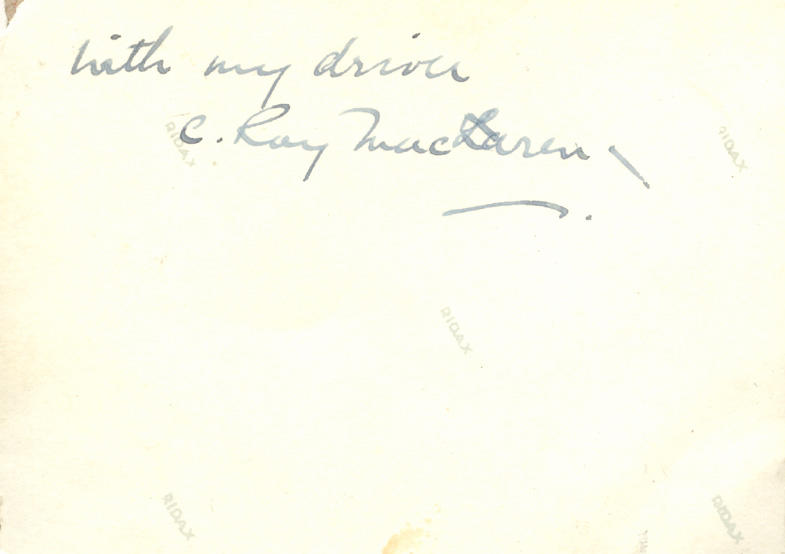 with my driver
C. Roy MacLaren
RIDAX
RIDAX
RIDAX
RIDAX
RIDAX